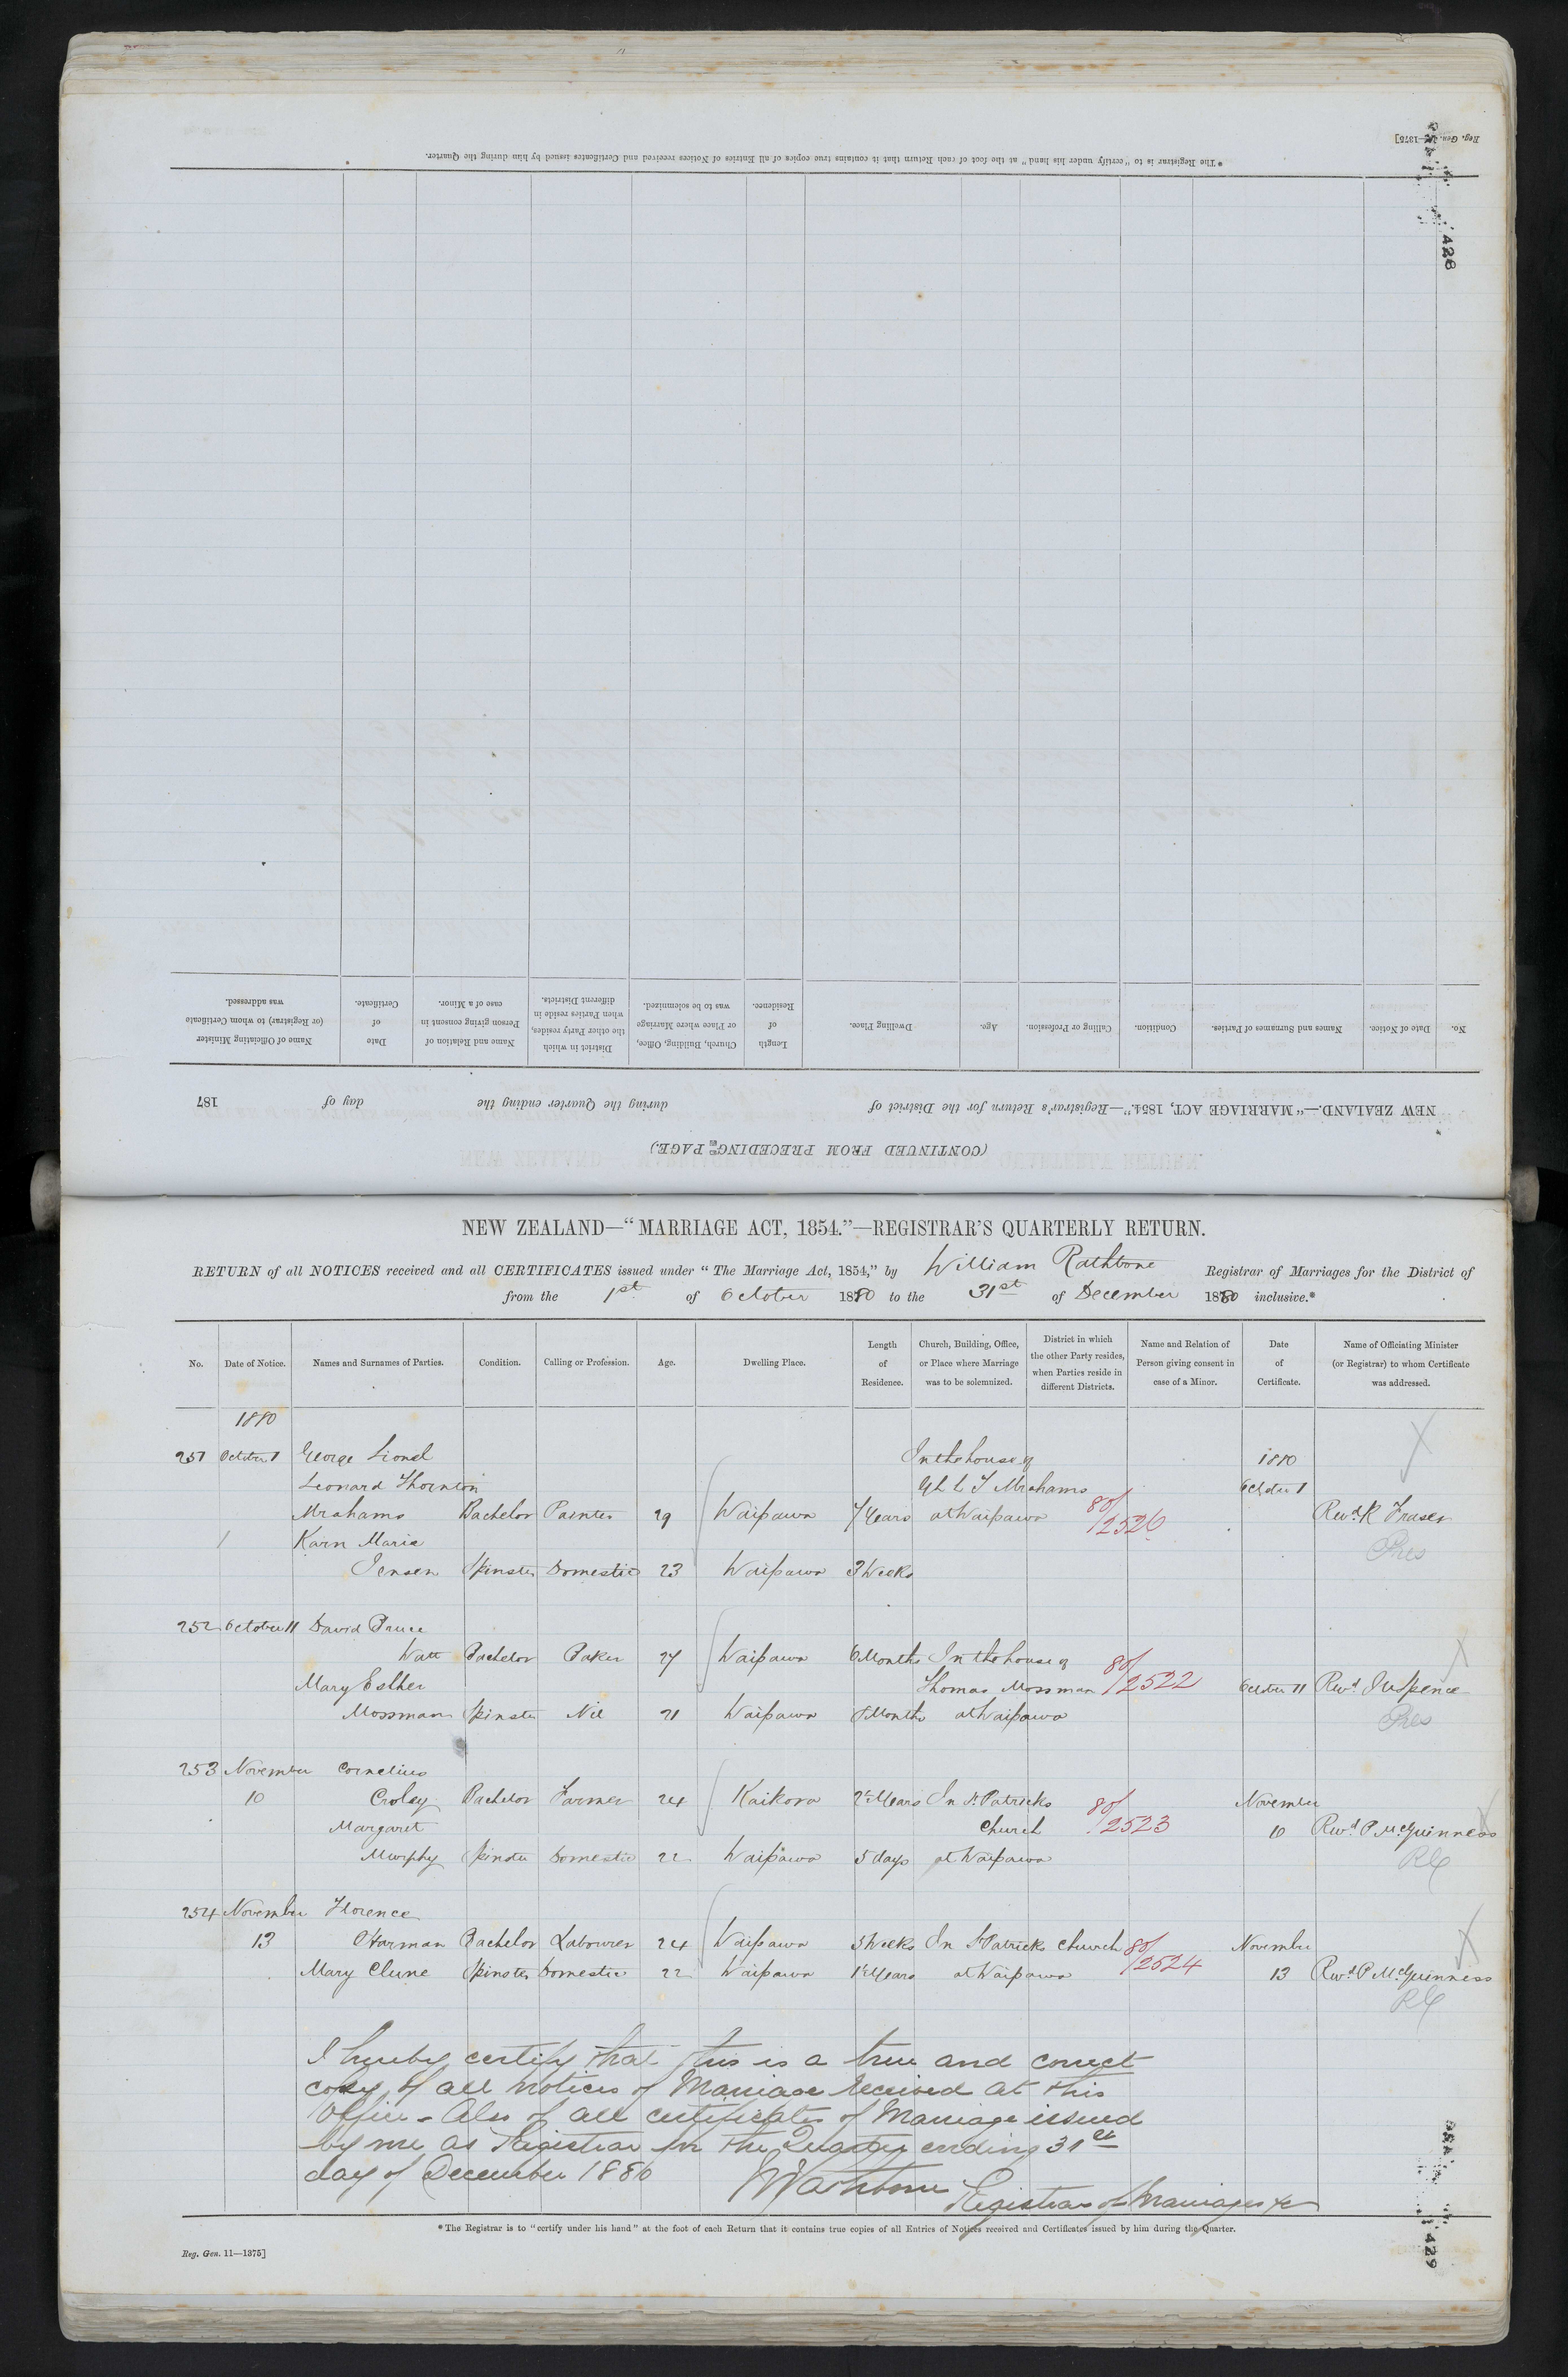 Reg. Gen. 11—1375]
* The Registrar is to "certify under his hand" at the foot of each Return that it contains true copies of all Entries of Notices received and Certificates issued by him during the Quarter.
428
(CONTINUED FROM PRECEDING PAGE.)
NEW ZEALAND.—"MARRIAGE ACT, 1854."—Registrar's Return for the District of during the Quarter ending the day of 187
No. Date of Notice. Names and Surnames of Parties. Condition. Calling or Profession. Age. Dwelling Place. Length of Residence. Church, Building, Office, or Place where Marriage was to be solemnized. District in which the other Party resides, when Parties reside in different Districts. Name and Relation of Person giving consent in case of a Minor. Date of Certificate. Name of Officiating Minister (or Registrar) to whom Certificate was addressed.
NEW ZEALAND—"MARRIAGE ACT, 1854."—REGISTRAR'S QUARTERLY RETURN.
RETURN of all NOTICES received and all CERTIFICATES issued under "The Marriage Act, 1854," by William Rathbone Registrar of Marriages for the District of
from the 1st of October 1880 to the 31st of December 1880 inclusive.*
No. Date of Notice. Names and Surnames of Parties. Condition. Calling or Profession. Age. Dwelling Place. Length of Residence. Church, Building, Office, or Place where Marriage was to be solemnized. District in which the other Party resides, when Parties reside in different Districts. Name and Relation of Person giving consent in case of a Minor. Date of Certificate. Name of Officiating Minister (or Registrar) to whom Certificate was addressed.
1880
251 October 1 George Lionel In the house of 1880
Leonard Thornton L T Abrahams October 1
Abrahams Bachelor Painter 29 Waipawa 7 Years at Waipawa 80/2526 Revd. R Fraser
1 Karn Maria Pres
Jensen Spinster Domestic 23 Waipawa 3 Weeks
252 October 11 David Bruce
Watt Bachelor Baker 27 Waipawa 6 Months In the house of 80/2522
Mary Esther Thomas Mossman October 11 Revd. Spence
Mossman Spinster Nil 21 Waipawa 8 Months at Waipawa Pres
253 November Cornelius
10 Croley Bachelor Farmer 24 Kaikora 2½ Years In St Patricks 80/2523 November
Margaret Church 10 Revd. P McGuinness
Murphy Spinster Domestic 22 Waipawa 5 days at Waipawa RC
254 November Florence
13 Harman Bachelor Labourer 24 Waipawa 3 Weeks In St Patricks Church 80/2524 November
Mary Clune Spinster Domestic 22 Waipawa 1½ Years at Waipawa 13 Revd. P McGuinness
RC
I hereby certify that this is a true and correct
copy of all notices of Marriage received at this
Office - Also of all certificates of Marriage issued
by me as Registrar for the Quarter ending 31st
day of December 1880 W Rathbone
Registrar of Marriages &c
* The Registrar is to "certify under his hand" at the foot of each Return that it contains true copies of all Entries of Notices received and Certificates issued by him during the Quarter.
Reg. Gen. 11—1375]
429